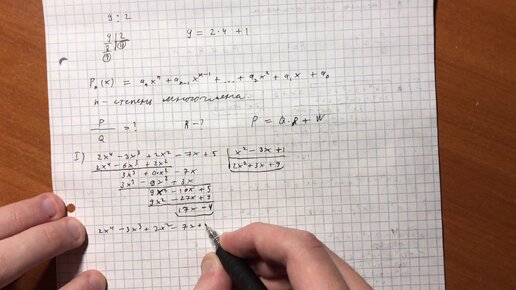 9 : 2
9 | 2
8 | 4
1
9 = 2·4 + 1
Pₙ(x) = aₙxⁿ + aₙ₋₁xⁿ⁻¹ + ... + a₂x² + a₁x + a₀
n - степень многочлена
P/Q = ? R - ? P = Q·R + W
I) 2x⁴ - 3x³ + 2x² - 7x + 5 | x² - 3x + 1
2x⁴ - 6x³ + 2x² | 2x² + 3x + 9
3x³ + 0x² - 7x
3x³ - 9x² + 3x
9x² - 10x + 5
9x² - 27x + 9
17x - 4
2x⁴ - 3x³ + 2x² - 7x +